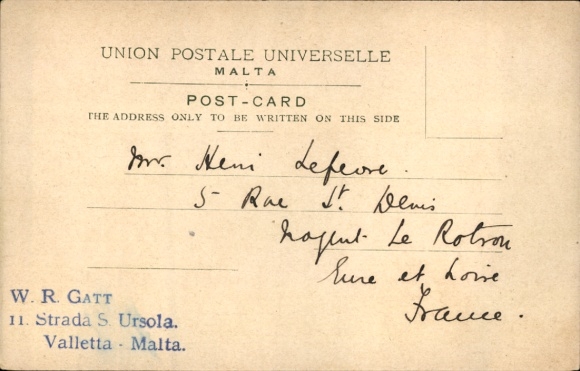 UNION POSTALE UNIVERSELLE
MALTA
POST-CARD
THE ADDRESS ONLY TO BE WRITTEN ON THIS SIDE
Mr. Henri Lefevre.
5 Rue St. Denis
Nogent Le Rotrou
Eure et Loire
France.
W. R. GATT
11. Strada S. Ursola.
Valletta - Malta.